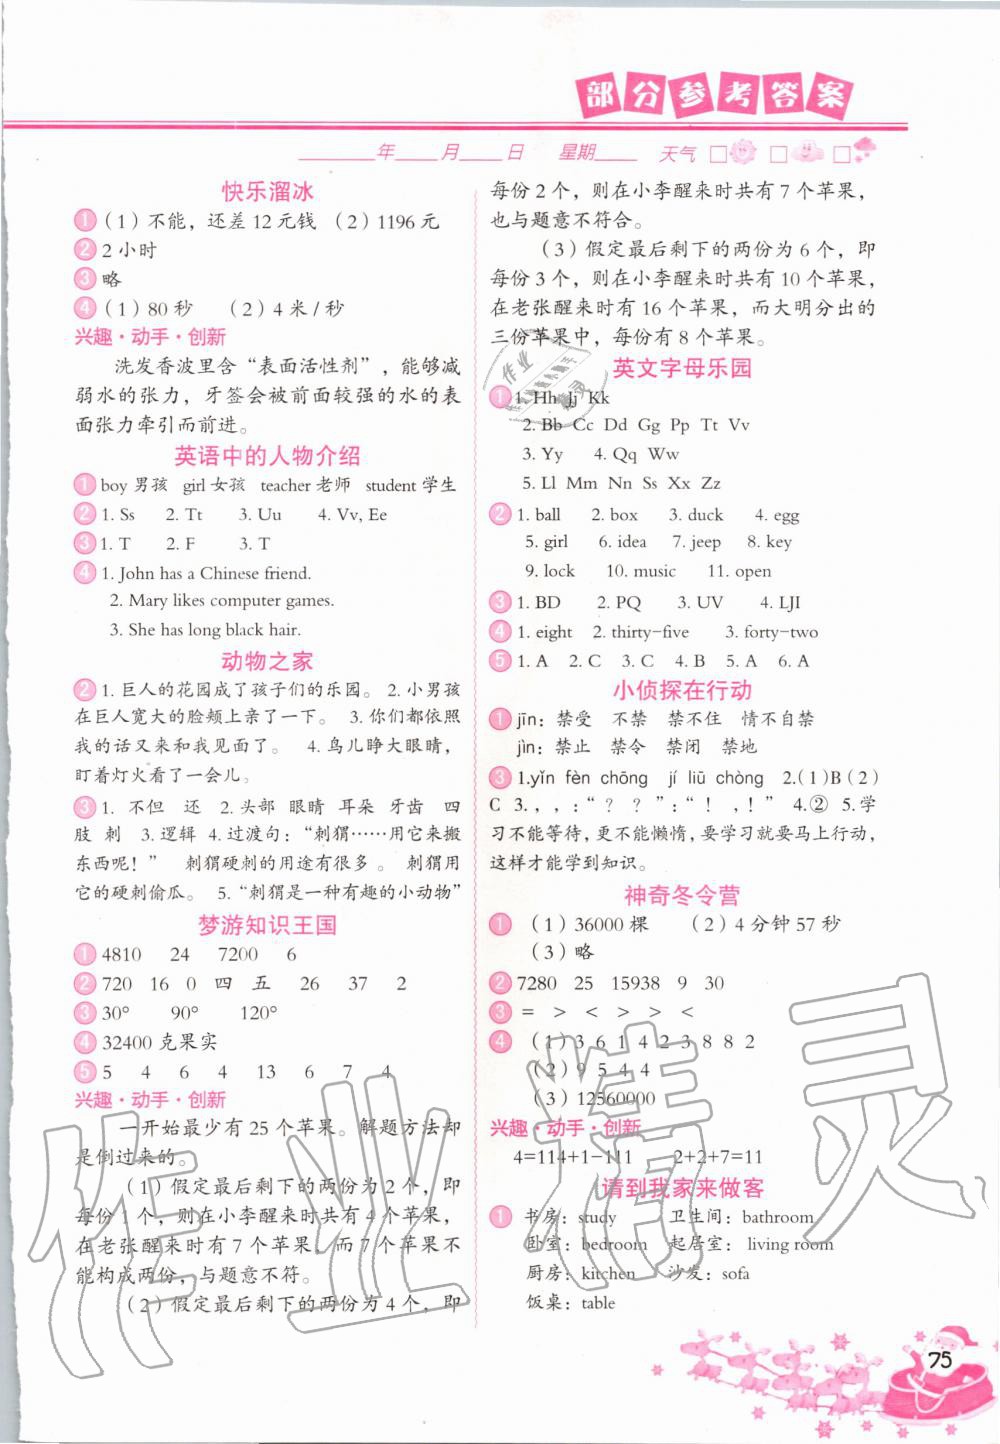 部分参考答案
年 月 日 星期 天气 □ □ □
快乐溜冰
1 (1)不能,还差12元钱 (2)1196元
2 2小时
3 略
4 (1)80秒 (2)4米/秒
兴趣·动手·创新
洗发香波里含“表面活性剂”,能够减
弱水的张力,牙签会被前面较强的水的表
面张力牵引而前进。
英语中的人物介绍
1 boy男孩 girl女孩 teacher老师 student学生
2 1. Ss 2. Tt 3. Uu 4. Vv, Ee
3 1. T 2. F 3. T
4 1. John has a Chinese friend.
2. Mary likes computer games.
3. She has long black hair.
动物之家
2 1. 巨人的花园成了孩子们的乐园。 2. 小男孩
在巨人宽大的脸颊上亲了一下。 3. 你们都依照
我的话又来和我见面了。 4. 鸟儿睁大眼睛,
盯着灯火看了一会儿。
3 1. 不但 还 2. 头部 眼睛 耳朵 牙齿 四
肢 刺 3. 逻辑 4. 过渡句:“刺猬……用它来搬
东西呢!” 刺猬硬刺的用途有很多。 刺猬用
它的硬刺偷瓜。 5. “刺猬是一种有趣的小动物”
梦游知识王国
1 4810 24 7200 6
2 720 16 0 四 五 26 37 2
3 30° 90° 120°
4 32400 克果实
5 5 4 6 4 13 6 7 4
兴趣·动手·创新
一开始最少有25个苹果。解题方法却
是倒过来的。
(1)假定最后剩下的两份为2个,即
每份1个,则在小李醒来时共有4个苹果,
在老张醒来时有7个苹果,而7个苹果不
能构成两份,与题意不符。
(2)假定最后剩下的两份为4个,即
每份2个,则在小李醒来时共有7个苹果,
也与题意不符合。
(3)假定最后剩下的两份为6个,即
每份3个,则在小李醒来时共有10个苹果,
在老张醒来时有16个苹果,而大明分出的
三份苹果中,每份有8个苹果。
英文字母乐园
1 1. Hh Jj Kk
2. Bb Cc Dd Gg Pp Tt Vv
3. Yy 4. Qq Ww
5. Ll Mm Nn Ss Xx Zz
2 1. ball 2. box 3. duck 4. egg
5. girl 6. idea 7. jeep 8. key
9. lock 10. music 11. open
3 1. BD 2. PQ 3. UV 4. LJI
4 1. eight 2. thirty-five 3. forty-two
5 1. A 2. C 3. C 4. B 5. A 6. A
小侦探在行动
1 jīn:禁受 不禁 禁不住 情不自禁
jìn:禁止 禁令 禁闭 禁地
3 1.yǐn fèn chōng jí liū chòng 2.(1)B(2)
C 3. , , :“ ? ? ”:“ ! , ! ” 4.② 5.学
习不能等待,更不能懒惰,要学习就要马上行动,
这样才能学到知识。
神奇冬令营
1 (1)36000棵 (2)4分钟57秒
(3)略
2 7280 25 15938 9 30
3 = > < > > <
4 (1)3 6 1 4 2 3 8 8 2
(2)9 5 4 4
(3)12560000
兴趣·动手·创新
4=114+1-111 2+2+7=11
请到我家来做客
1 书房:study 卫生间:bathroom
卧室:bedroom 起居室:living room
厨房:kitchen 沙发:sofa
饭桌:table
75
作业精灵